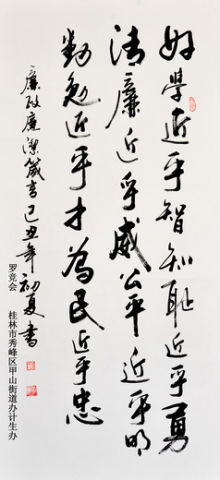 好學近乎智知恥近乎勇
清廉近乎威公平近乎明
勤勉近乎才為民近乎忠
廉政廉潔箴言己丑年初夏書
罗竞会 桂林市秀峰区甲山街道办计生办